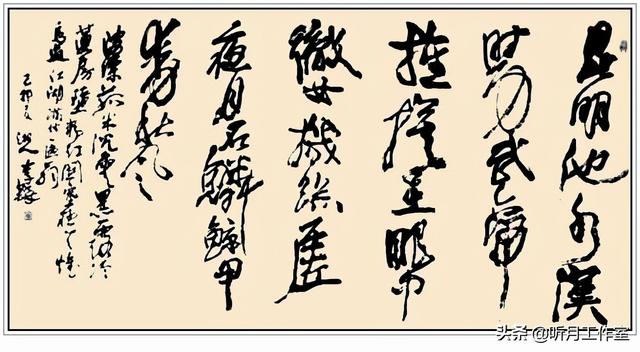 昆明池水漢
時功武帝
旌旗在眼中
織女機絲虛
夜月石鱗鯨甲
動秋風
波漂菰米沉雲黑露冷
蓮房墜粉紅關塞極天惟
鳥道江湖滿地一漁翁
己卯夏 湘人李鐸
头条 @听月工作室